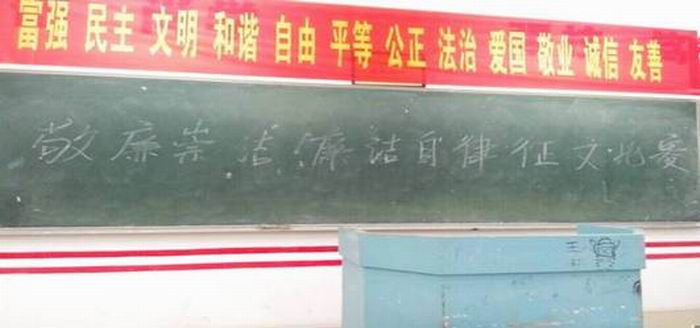 富强 民主 文明 和谐 自由 平等 公正 法治 爱国 敬业 诚信 友善
敬廉崇洁 廉洁自律 征文比赛
王